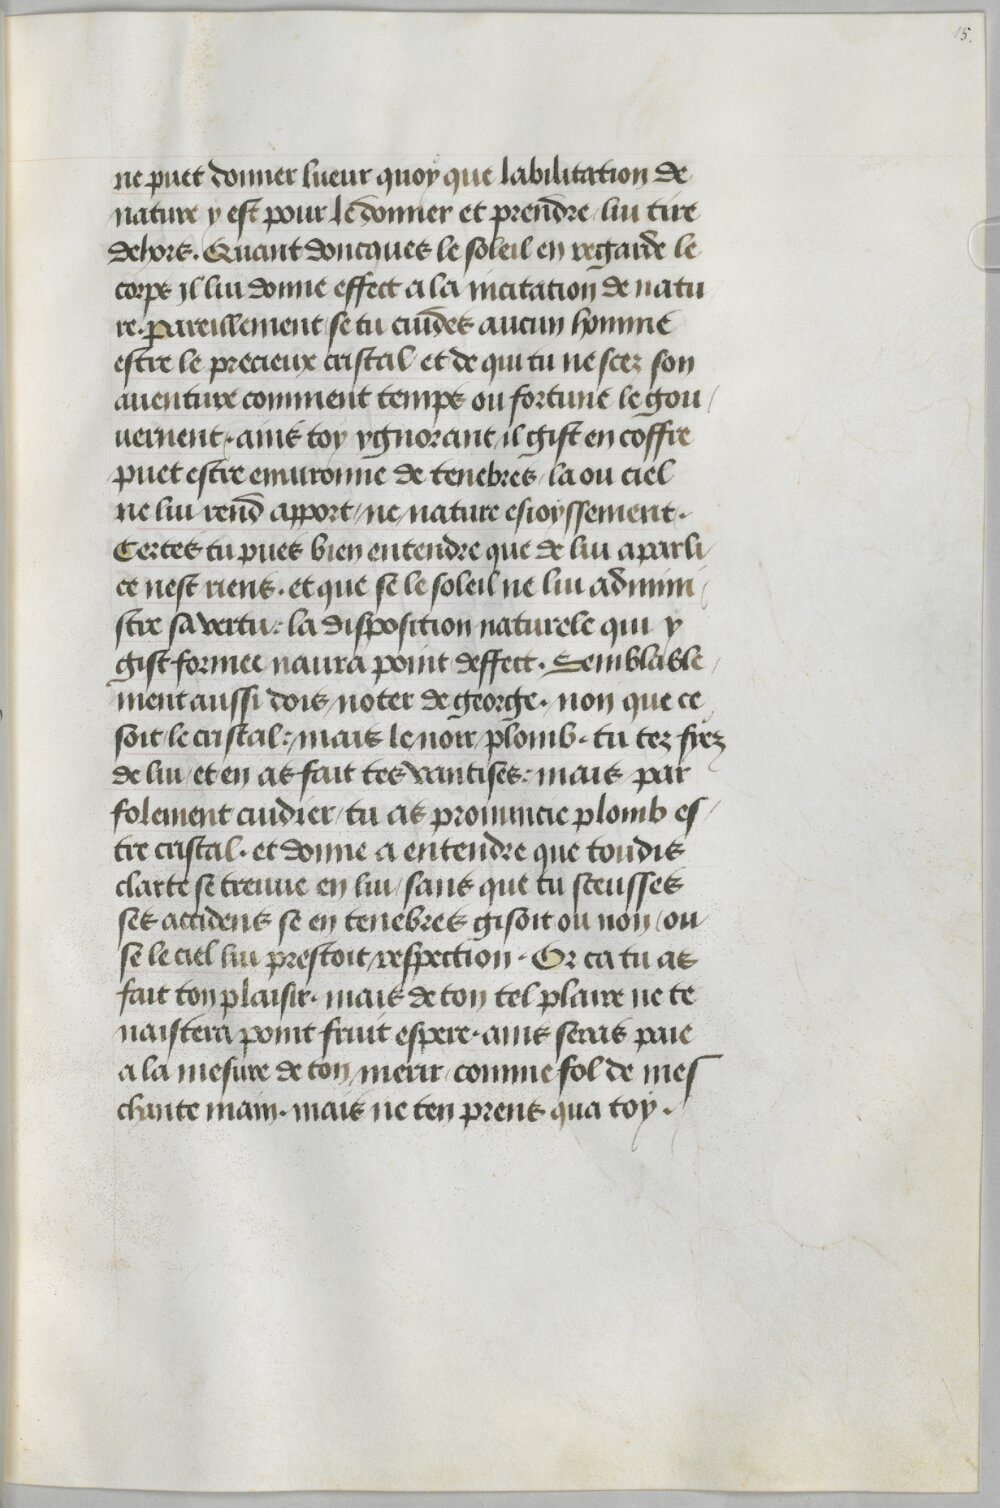 15.
ne puet donner lueur quoy que labilitation de
nature y est pour le donner et prendre / lui tire
dehors. Quant doncques le soleil en regarde le
corps il lui donne effect a la incitation de natu
re. pareillement / se tu cuides aucun homme
estre le precieux cristal / et de qui tu ne scez son
auenture comment temps ou fortune le gou /
uernent. ains toy ygnorant / il gist en coffre
puet estre enuironne de tenebres / la ou ciel
ne lui rend apport / ne nature esioyssement.
Certes tu pues bien entendre que de lui a par li /
ce nest riens. et que se le soleil ne lui admini /
stre sa vertu: la disposition naturele qui y
gist formee naura point deffect. Semblable /
ment aussi dois / noter de george. non que ce
soit le cristal: / mais le noir plomb. tu tez fiez
de lui / et en as fait tes vantises: mais par
folement cuidier / tu as pronuncie plomb es /
tre cristal. et donne a entendre que toudis
clarte se treuue en lui / sans que tu sceusses
ses accidens se en tenebres gisoit ou non / ou
se le ciel lui prestoit respection. Or ca tu as
fait ton plaisir. mais de ton tel plaire ne te
naistera point fruit espere. ains seras paie
a la mesure de ton merir comme fol de mes
chante main. mais ne ten prens qua toy.